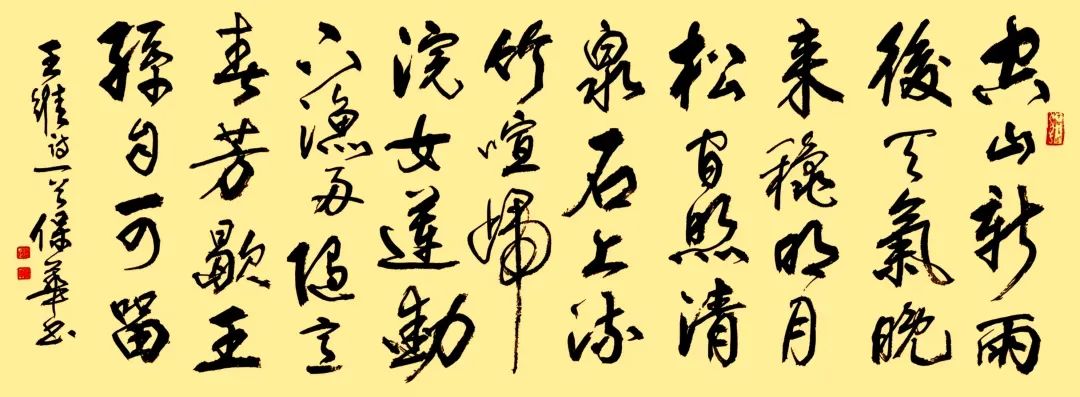 空山新雨
後天氣晚
来穐明月
松间照清
泉石上流
竹喧歸
浣女蓮動
下漁舟随意
春芳歇王
孫自可留
王維诗一首保華书